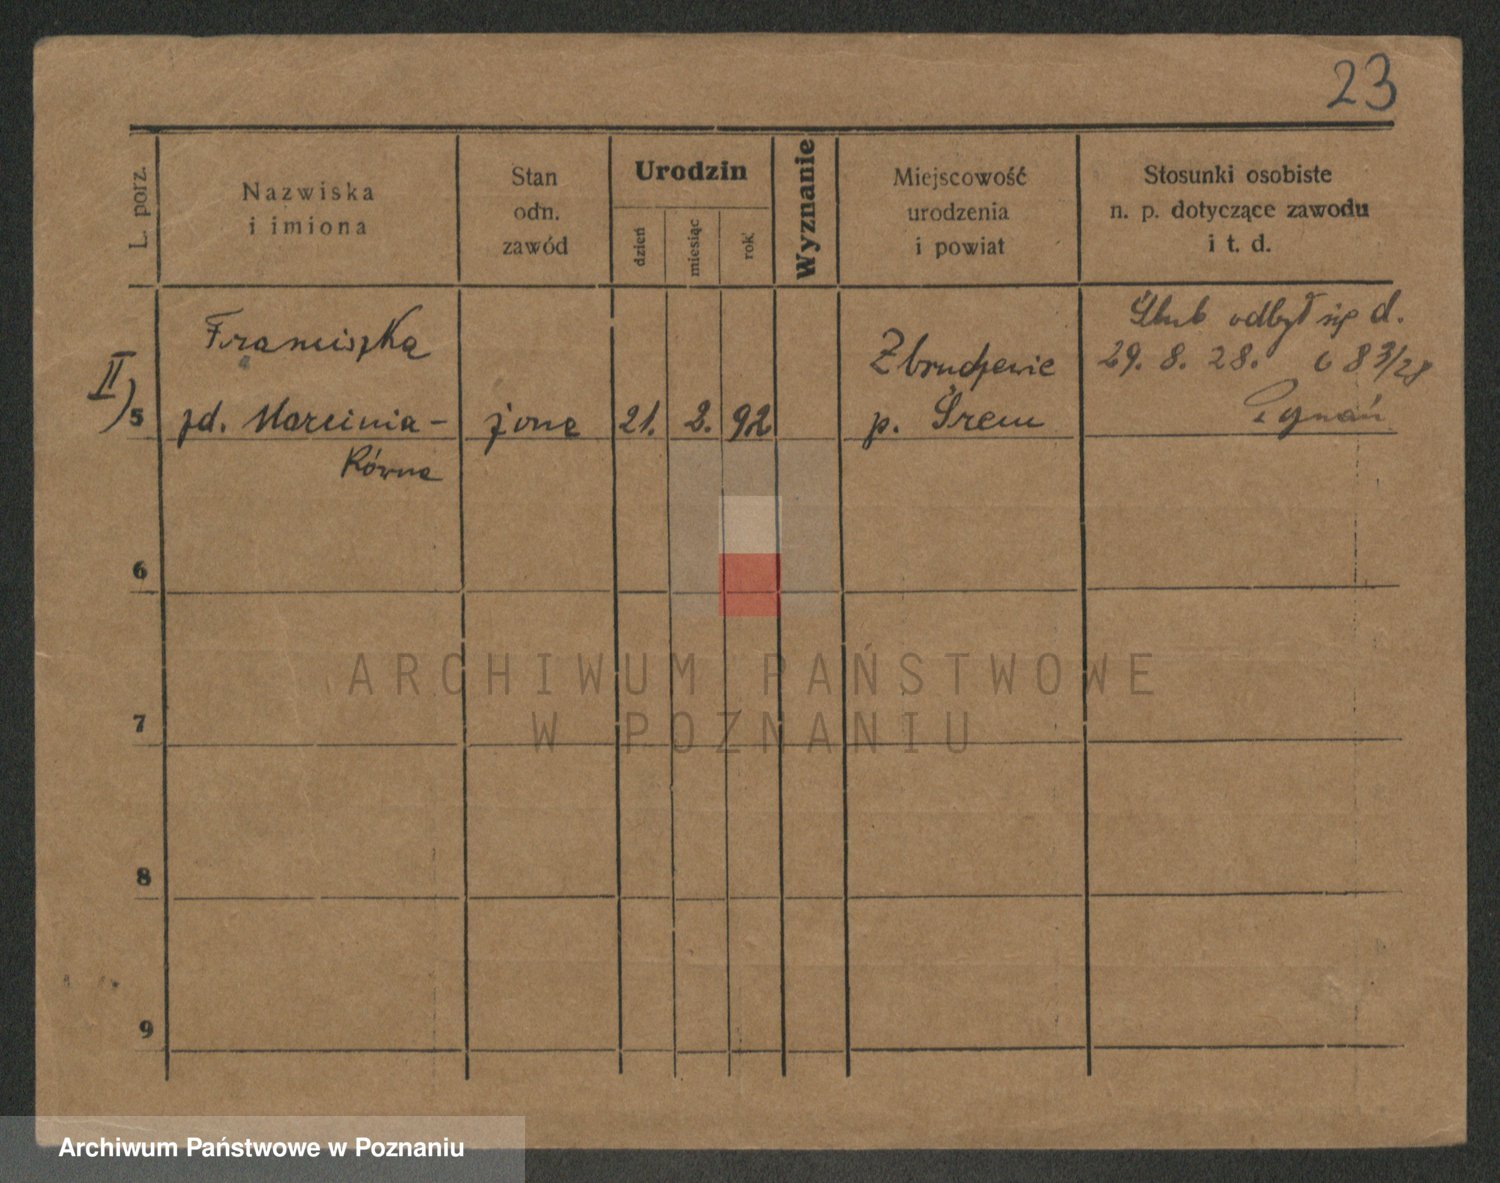 23
L. porz.
Nazwiska
i imiona
Stan
odn.
zawód
Urodzin
dzień
miesiąc
rok
Wyznanie
Miejscowość
urodzenia
i powiat
Stosunki osobiste
n. p. dotyczące zawodu
i t. d.
II) 5
Franciszka
zd. Marcinia-
kówna
żona
21. 2. 92
p. Śrem
Ślub odbył się d.
29. 8. 28. 683/28
Poznań
6
7
8
9
ARCHIWUM PAŃSTWOWE
W POZNANIU
Archiwum Państwowe w Poznaniu